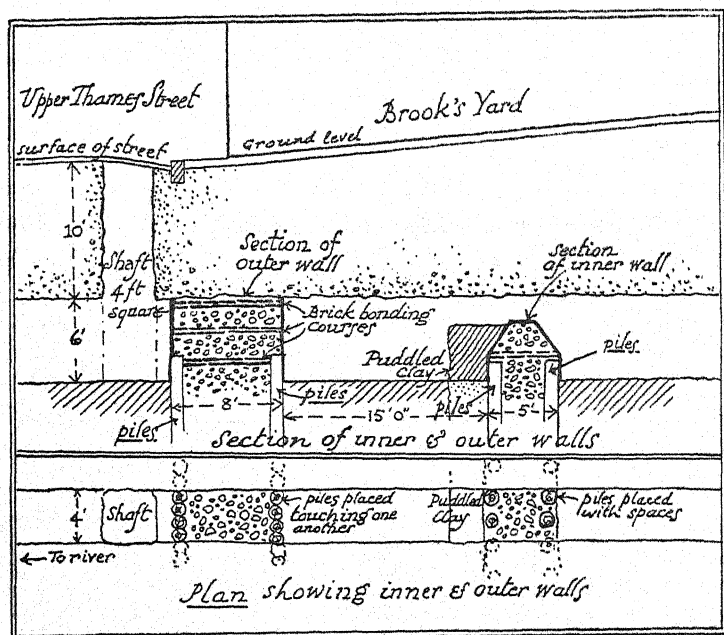 Upper Thames Street
Brook's Yard
surface of street
Ground level
10'
Shaft
4 ft
square
Section of
outer wall
section
of inner wall
Brick bonding
courses
6'
Puddled
clay
piles
piles
piles
piles
8'
15' 0"
5'
Section of inner & outer walls
4'
Shaft
piles placed
touching one
another
Puddled
clay
piles placed
with spaces
← To river
Plan showing inner & outer walls